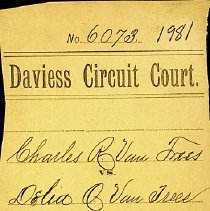 No. 6073. 1981
Daviess Circuit Court.
Charles R Van Trees
vs
Delia O Van Trees